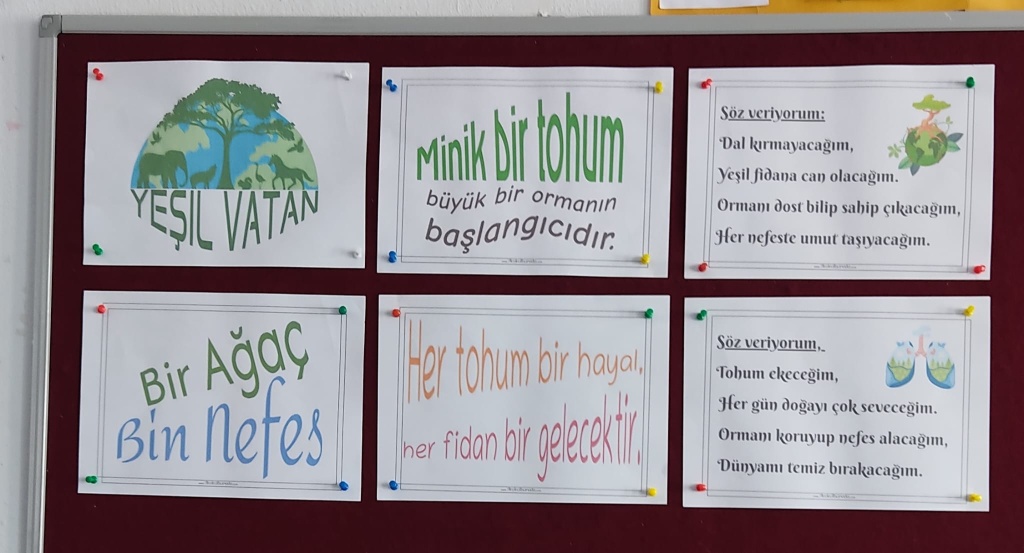 YEŞİL VATAN
Minik bir tohum
büyük bir ormanın
başlangıcıdır.
Söz veriyorum:
Dal kırmayacağım,
Yeşil fidana can olacağım.
Ormanı dost bilip sahip çıkacağım,
Her nefeste umut taşıyacağım.
Bir Ağaç
Bin Nefes
Her tohum bir hayal,
her fidan bir gelecektir.
Söz veriyorum,
Tohum ekeceğim,
Her gün doğayı çok seveceğim.
Ormanı koruyup nefes alacağım,
Dünyamı temiz bırakacağım.